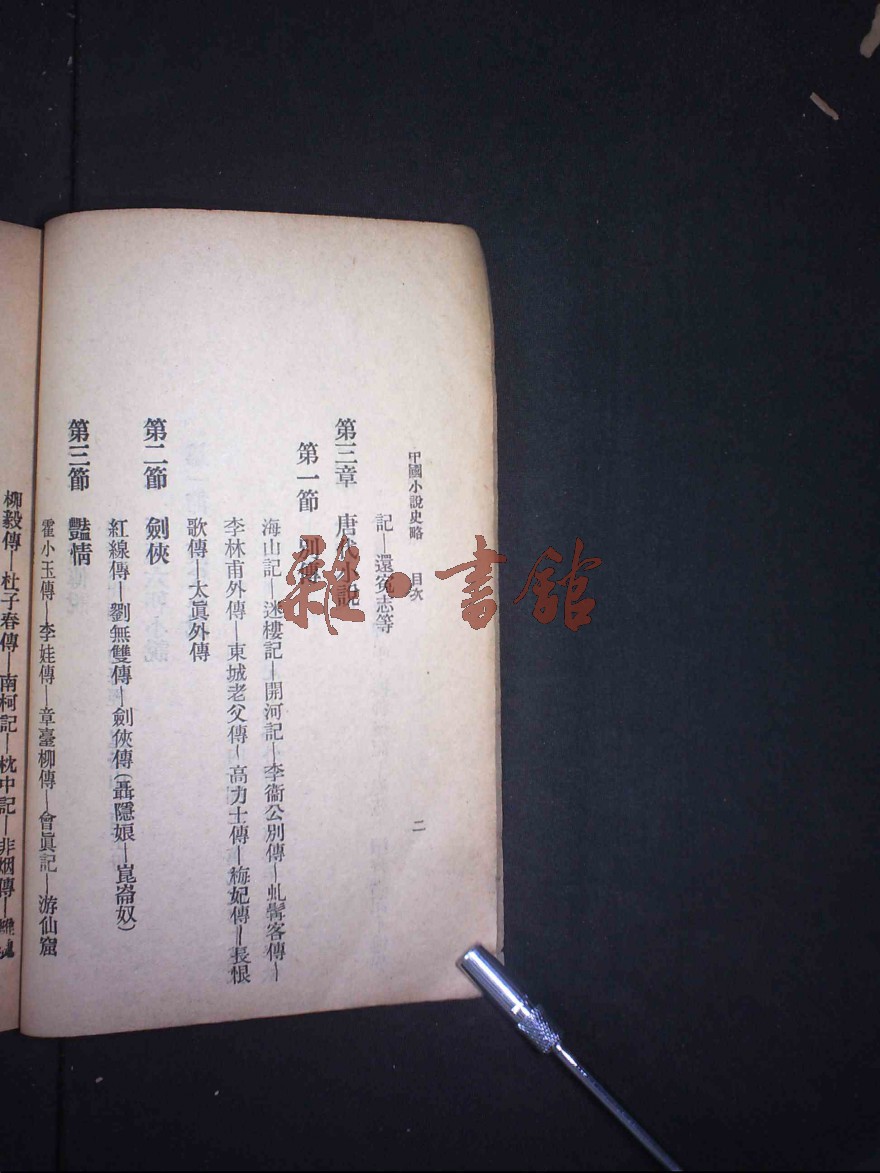 中國小說史略 目次 二
記—還冤志等
第三章 唐代小說
第一節 別傳
海山記—迷樓記—開河記—李衞公別傳—虬髯客傳—
李林甫外傳—東城老父傳—高力士傳—梅妃傳—長恨
歌傳—太眞外傳
第二節 劍俠
紅線傳—劉無雙傳—劍俠傳(聶隱娘—崑崙奴)
第三節 豔情
霍小玉傳—李娃傳—章臺柳傳—會眞記—游仙窟
柳毅傳—杜子春傳—南柯記—枕中記—非烟傳—離魂
雜·書館